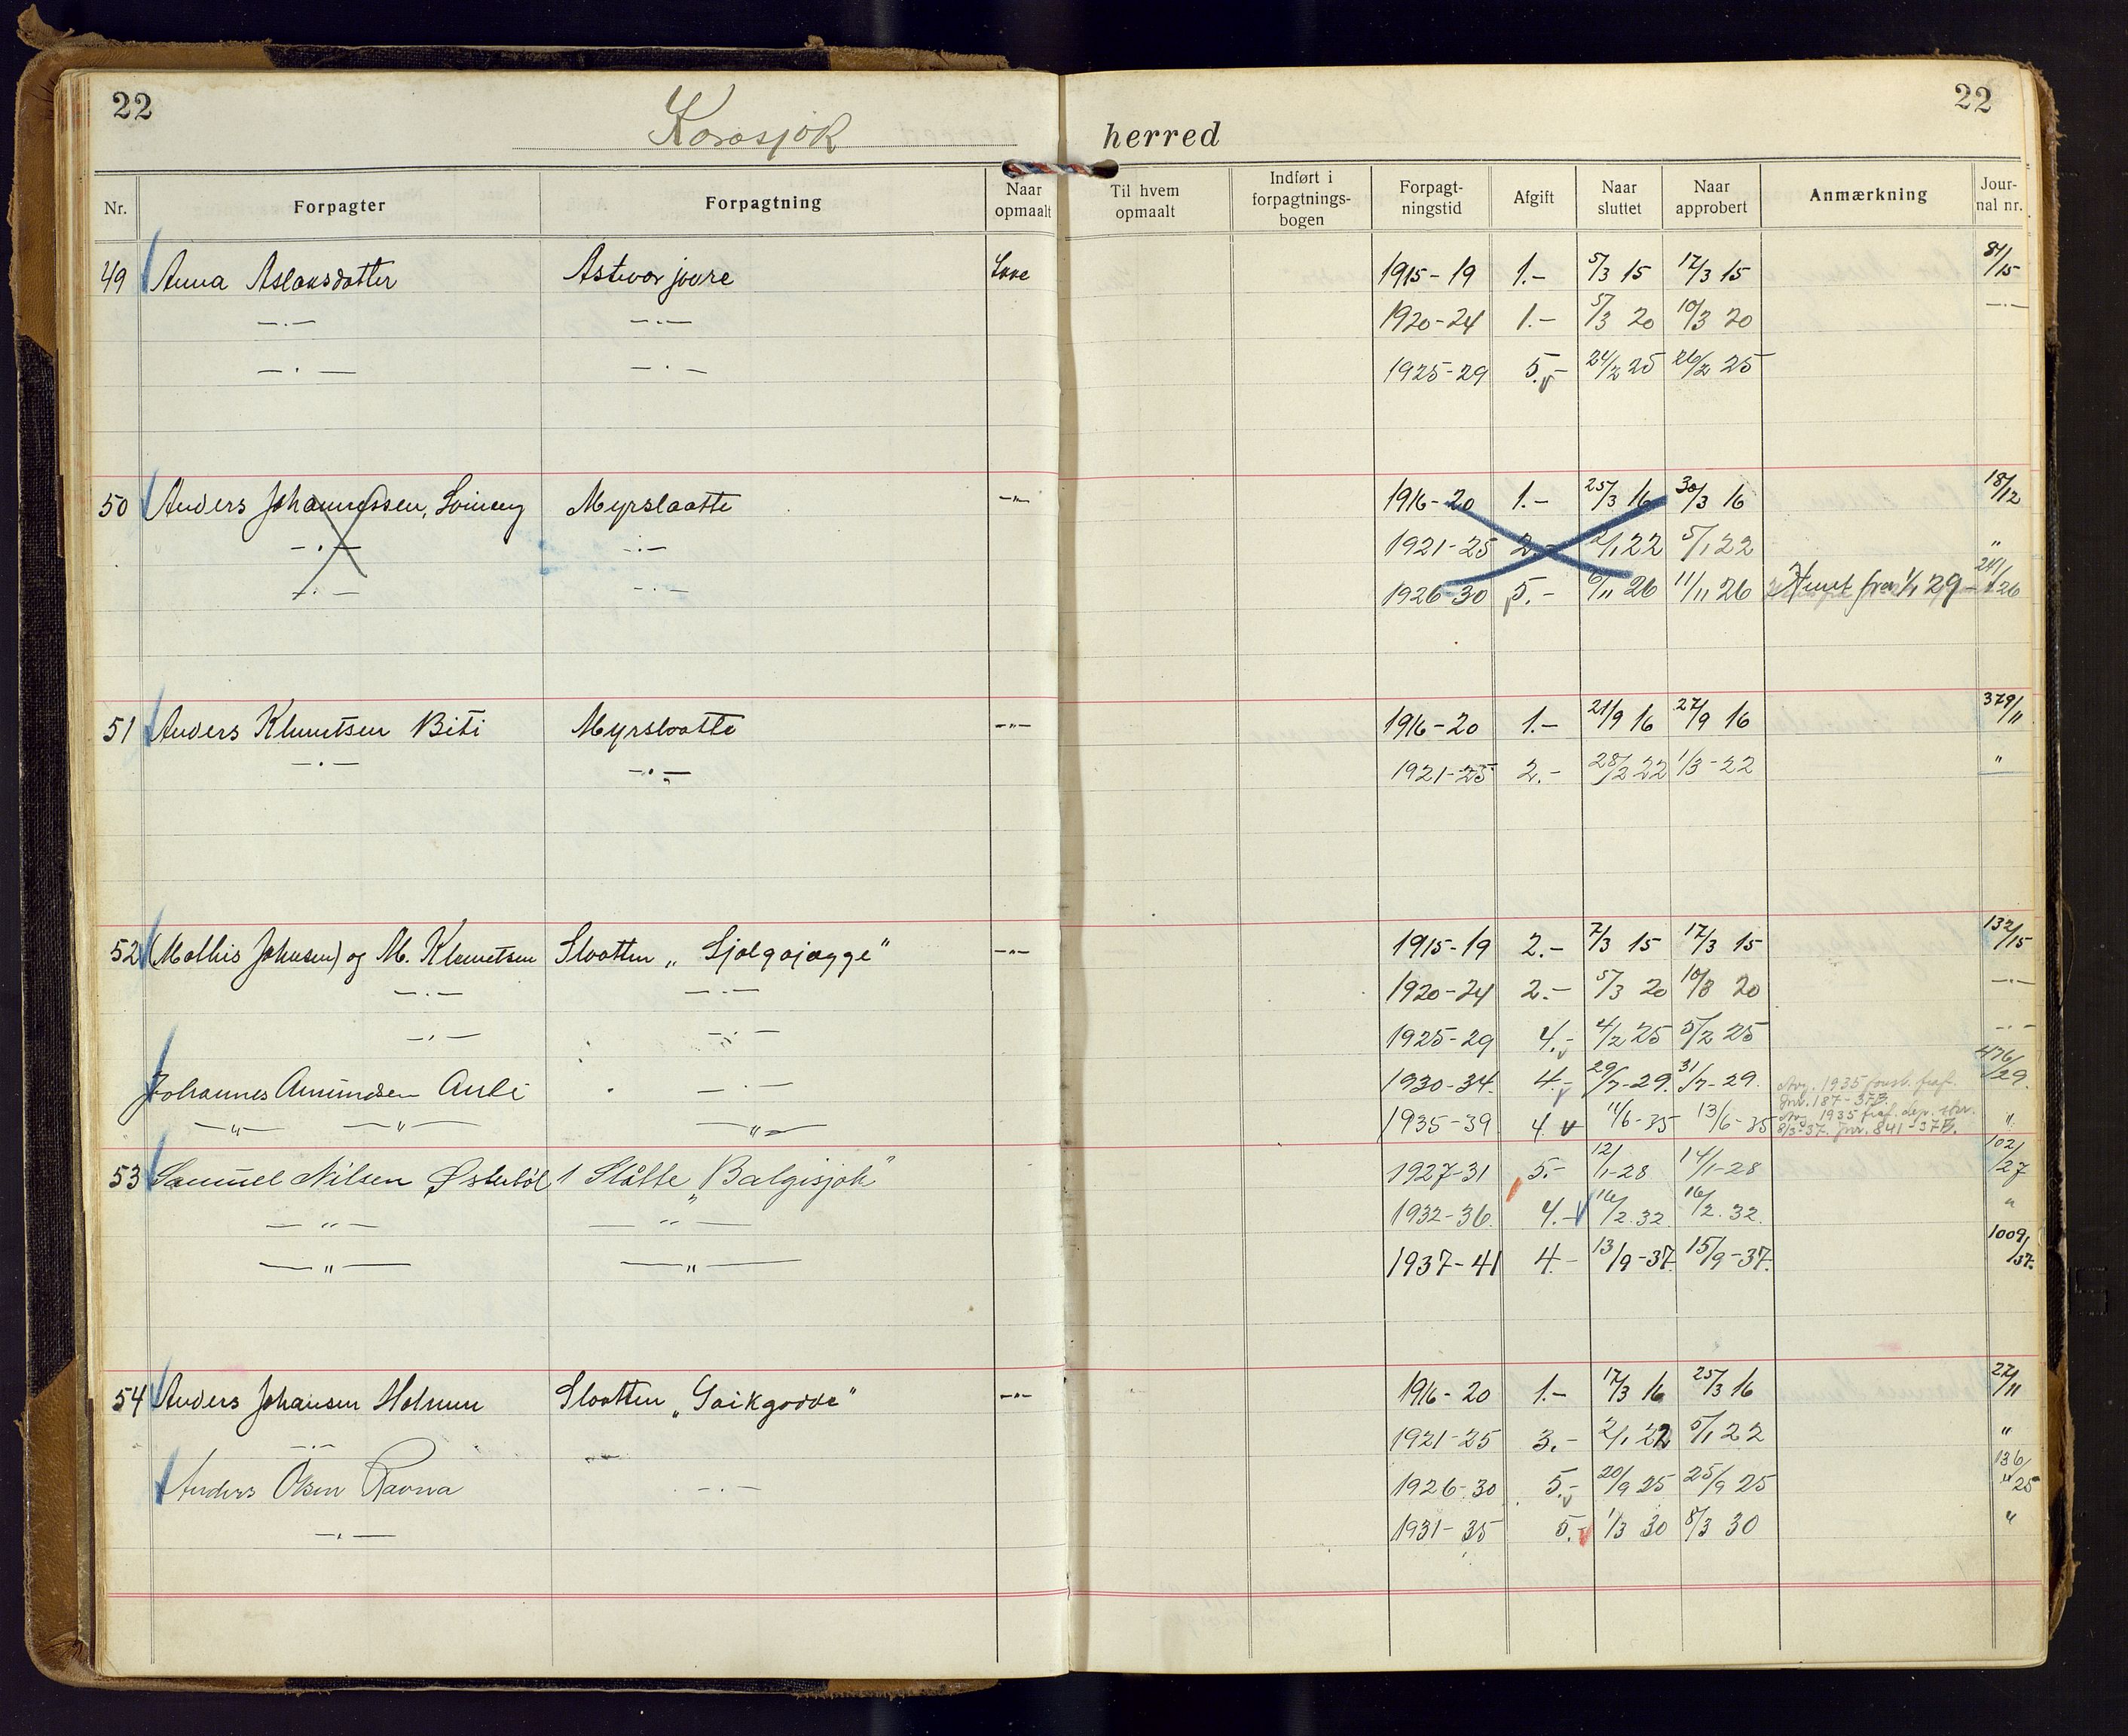 22
22
Karasjok herred
Nr. Forpagter Forpagtning Naar opmaalt Til hvem opmaalt Indført i forpagtnings-bogen Forpagt-ningstid Afgift Naar sluttet Naar approbert Anmærkning Jour-nal nr.
49 Anna Aslaksdatter 1915-19 1.- 5/3 15 17/3 15 81/15
—.— —.— 1920-24 1.- 5/3 20 10/3 20 —.—
—.— —.— 1925-29 5.- 24/2 25 26/2 25
50 Anders Johannessen, Myrslaatte —"— 1916-20 1.- 25/3 16 30/3 16 18/12
—.— —.— 1921-25 2.- 2/1 22 5/1 22 "
—.— —.— 1926-30 5.- 6/11 26 11/11 26 fra 1/1 29 26
51 Anders Klemetsen Biti Myrslaatte —"— 1916-20 1.- 21/9 16 27/9 16 379/11
—.— —.— 1921-25 2.- 28/2 22 1/3-22 "
52 (Mathis Johnsen) og M. Klemetsen Slaatten „ Sjolgajægge" —"— 1915-19 2.- 7/3 15 17/3 15 132/15
—.— —.— 1920-24 2.- 5/3 20 10/3 20 —.—
—.— —.— 1925-29 4.- 4/2 25 5/2 25 —.—
Johannes Amundsen Anti —.— 1930-34. 4.- 29/7-29. 31/7-29. 476/29.
—"— —"— —"— 1935-39 4. 11/6-35 13/6-35 "
Avg. 1935
Jnr. 187-37B.
Avg. 1935
8/3-37. Jnr. 841-37B.
53 Samuel Nilsen Østerböl 1 Slåtte „Balgisjok" 1927-31 5.- 12/1-28 14/1-28 102/27
—"— —"— 1932-36. 4.- 16/2.32. 16/2.32. "
—"— —"— 1937-41 4.- 13/9-37. 15/9-37. 1009/37.
54 Anders Johansen Holmen Slaatten „Gaikgodde" —"— 1916-20 1.- 17/3 16 25/3 16 22/11
—.— 1921-25 3.- 2/1 22 5/1 22 "
Anders Olsen Ravna —.— 1926-30 5.- 20/9 25 25/9 25 136/25
—.— 1931-35 5.- 1/3 30 8/3 30 "